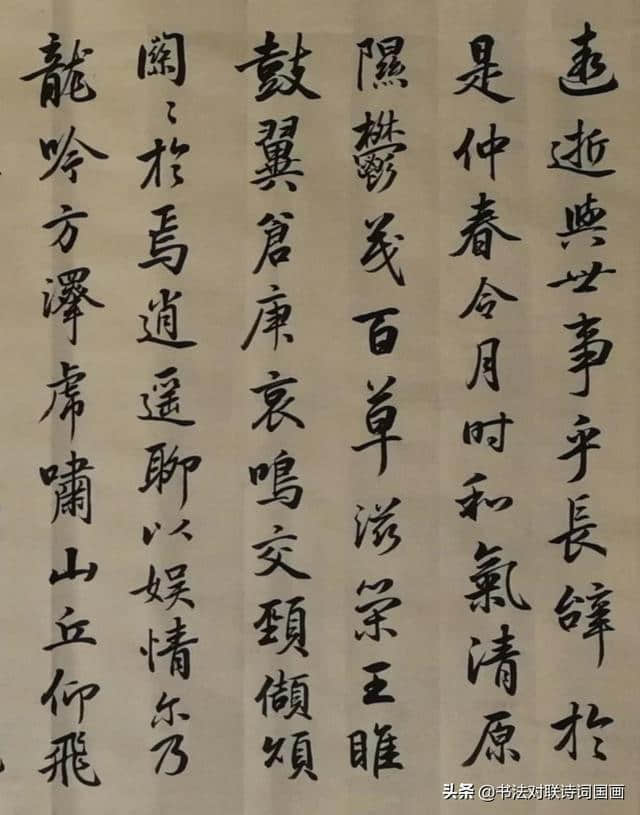 遠逝與世事乎長辝於
是仲春令月时和氣清原
隰鬱茂百草滋榮王雎
鼓翼倉庚哀鳴交頸頡頏
關〻於焉逍遥聊以娱情尔乃
龍吟方澤虎嘯山丘仰飛
头条 @书法对联诗词国画